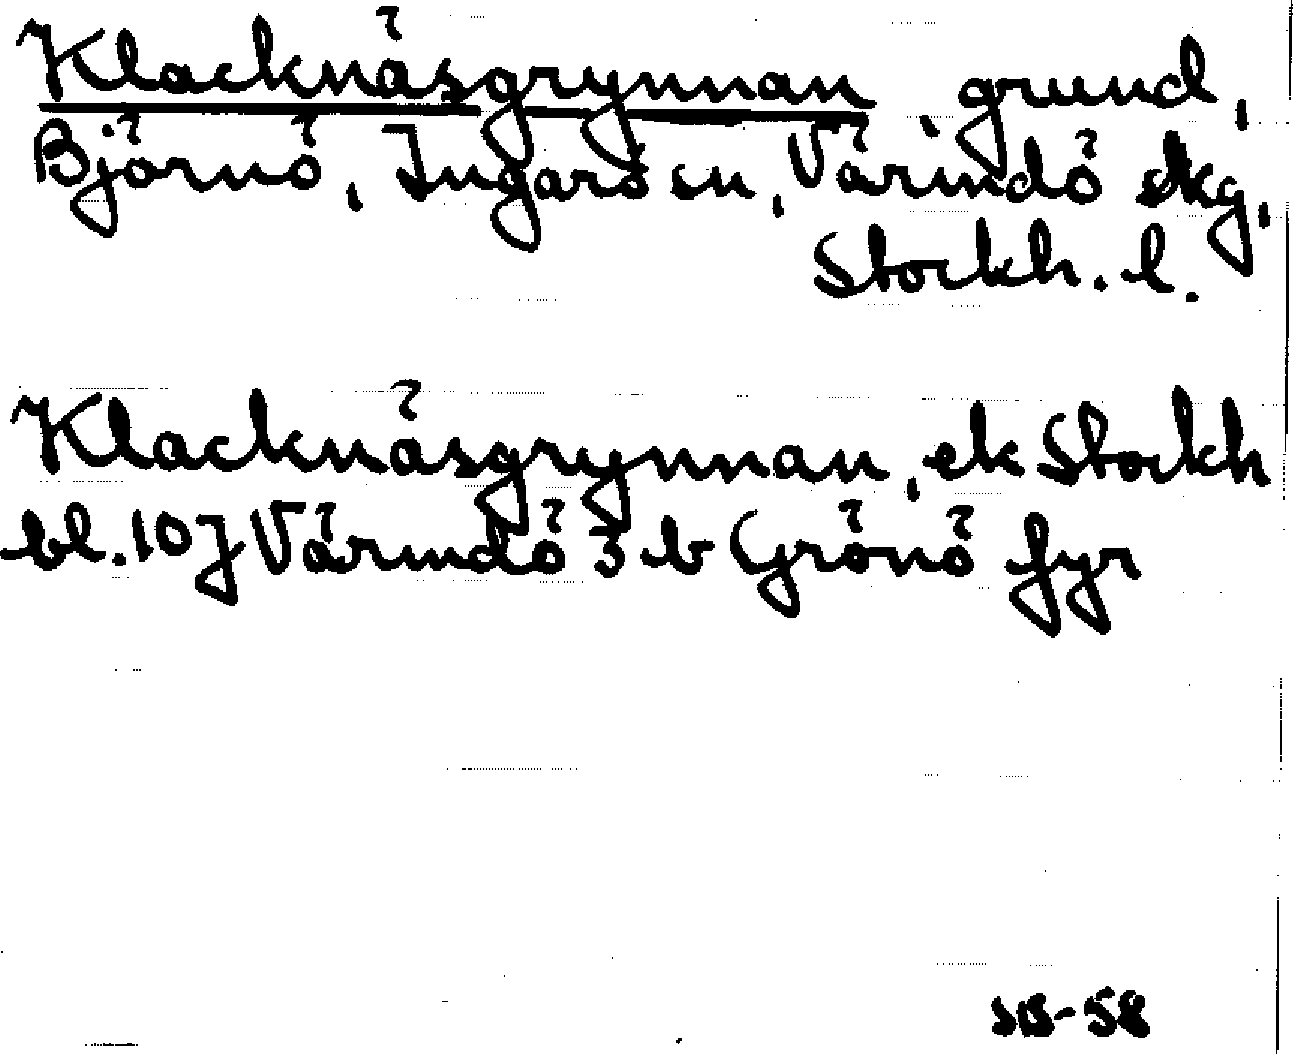 Klacknäsgrynnan, grund,
Björnö, Ingarö sn, Värmdö skg,
Stockh. l.
Klacknäsgrynnan, ek Stockh
bl. 10J Värmdö 3 b Grönö fyr
SB-58